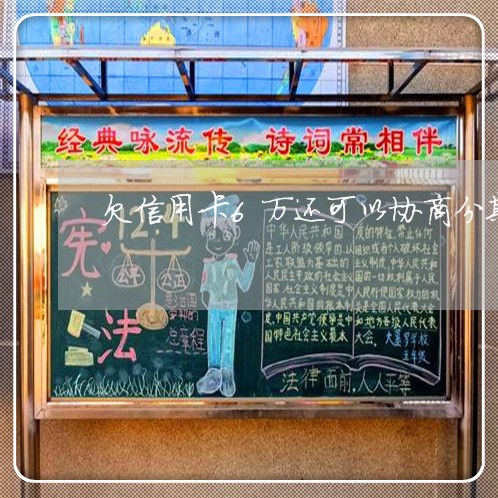 经典咏流传 诗词常相伴
欠信用卡6万还可以协商分期
12.4
宪
法
公平
公正
总章程
中华人民共和国
是工人阶级领导的,以
工农联盟为基础的
人民民主专政的社会主义
国家,社会主义制度是中
华人民共和国的根本制
度,中国共产党领导是中
国特色社会主义最本
质的特征,禁止任何
组织或者个人破坏社会
主义制度,中华人民共和
国的一切权利属于人民,
人民行使国家权力的机
关是全国人民代表大会
和地方各级人民代表
大会。
五年级
法律面前,人人平等